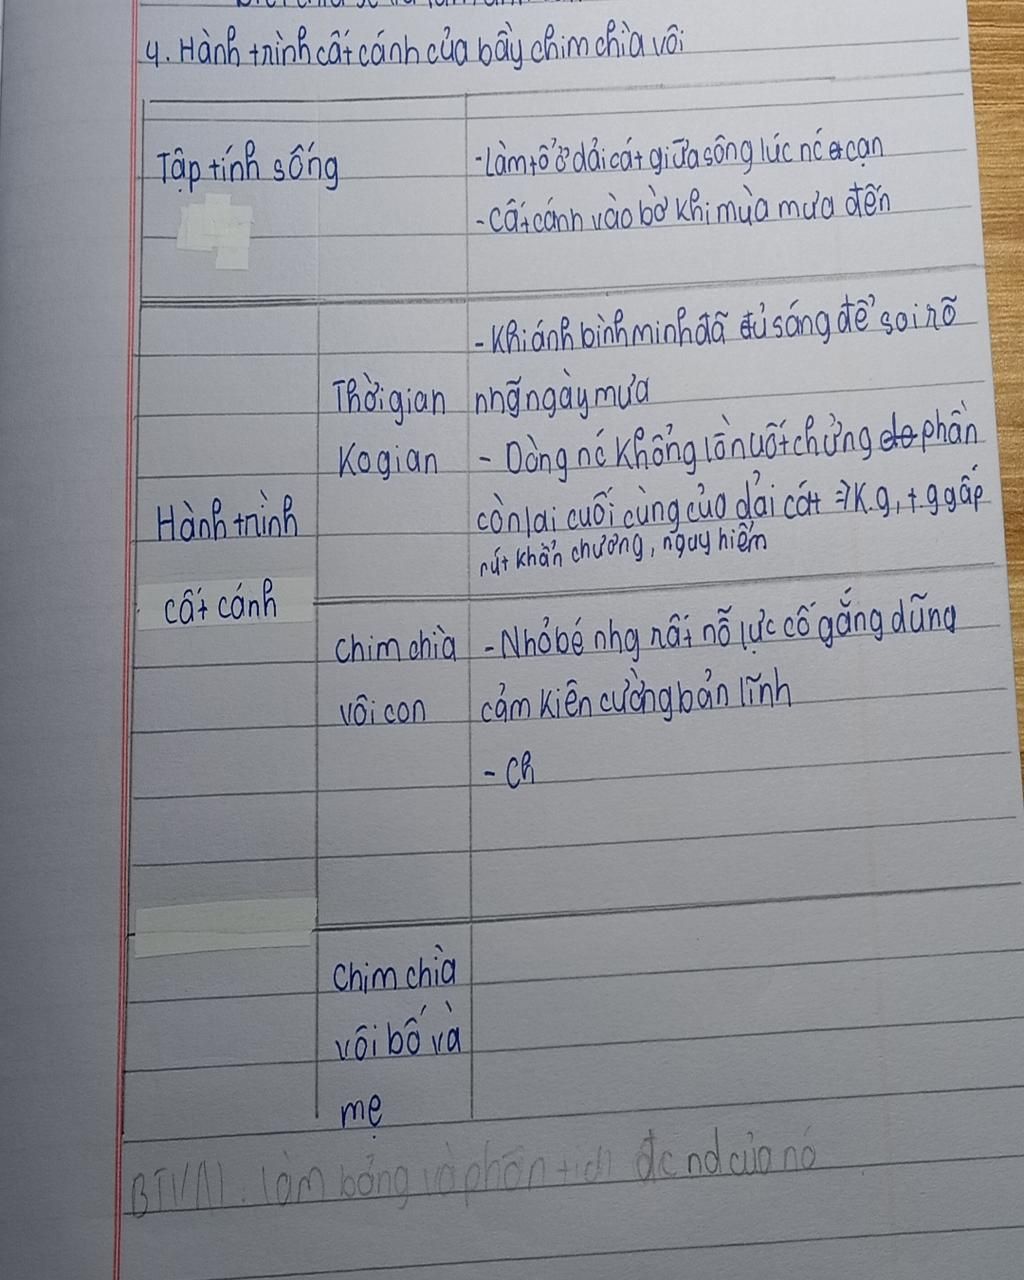 4. Hành trình cất cánh của bầy chim chìa vôi
Tập tính sống
- Làm tổ ở dải cát giữa sông lúc nc cạn
- Cất cánh vào bờ khi mùa mưa đến
Hành trình
cất cánh
Thời gian
Ko gian
- Khi ánh bình minh đã đủ sáng để soi rõ
nhg ngày mưa
- Dòng nc khổng lồ nuốt chửng phần
còn lại cuối cùng của dải cát => K.g, t.g gấp
rút khẩn chương, nguy hiểm
Chim chìa
vôi con
- Nhỏ bé nhg rất nỗ lực cố gắng dũng
cảm kiên cường bản lĩnh
- Ch
Chim chìa
vôi bố và
mẹ
BTVN: làm bảng và phân tích đc nd của nó